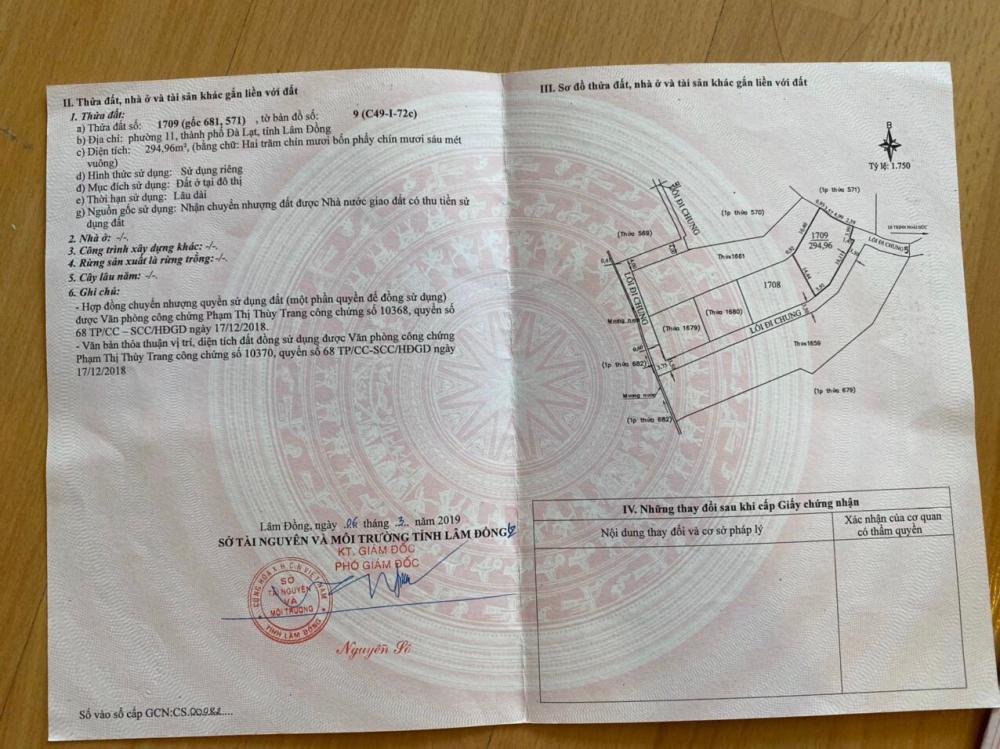 II. Thửa đất, nhà ở và tài sản khác gắn liền với đất
1. Thửa đất:
a) Thửa đất số: 1709 (gốc 681, 571) , tờ bản đồ số: 9 (C49-I-72c)
b) Địa chỉ: phường 11, thành phố Đà Lạt, tỉnh Lâm Đồng
c) Diện tích: 294,96m², (bằng chữ: Hai trăm chín mươi bốn phẩy chín mươi sáu mét
vuông)
d) Hình thức sử dụng: Sử dụng riêng
đ) Mục đích sử dụng: Đất ở tại đô thị
e) Thời hạn sử dụng: Lâu dài
g) Nguồn gốc sử dụng: Nhận chuyển nhượng đất được Nhà nước giao đất có thu tiền sử
dụng đất
2. Nhà ở: -/-.
3. Công trình xây dựng khác: -/-.
4. Rừng sản xuất là rừng trồng:-/-.
5. Cây lâu năm: -/-.
6. Ghi chú:
- Hợp đồng chuyển nhượng quyền sử dụng đất (một phần quyền để đồng sử dụng)
được Văn phòng công chứng Phạm Thị Thùy Trang công chứng số 10368, quyển số
68 TP/CC – SCC/HĐGD ngày 17/12/2018.
- Văn bản thỏa thuận vị trí, diện tích đất đồng sử dụng được Văn phòng công chứng
Phạm Thị Thùy Trang công chứng số 10370, quyển số 68 TP/CC-SCC/HĐGD ngày
17/12/2018
Lâm Đồng, ngày 06 tháng 3 năm 2019
SỞ TÀI NGUYÊN VÀ MÔI TRƯỜNG TỈNH LÂM ĐỒNG
KT. GIÁM ĐỐC
PHÓ GIÁM ĐỐC
CỘNG HÒA X.H.C.N VIỆT NAM
SỞ
TÀI NGUYÊN
VÀ
MÔI TRƯỜNG
TỈNH LÂM ĐỒNG
Số vào sổ cấp GCN:CS.00982....
III. Sơ đồ thửa đất, nhà ở và tài sản khác gắn liền với đất
B
Tỷ lệ: 1.750
(1p thửa 571)
(1p thửa 570)
LỐI ĐI CHUNG
(Thửa 569)
1709
294,96
ĐI TRỊNH HOÀI ĐỨC
LỐI ĐI CHUNG
Thửa 1661
1708
LỐI ĐI CHUNG
(Thửa 1680)
(Thửa 1679)
LỐI ĐI CHUNG
Mương nước
Thửa 1659
(1p thửa 682)
3,77
(1p thửa 679)
Mương nước
(1p thửa 682)
IV. Những thay đổi sau khi cấp Giấy chứng nhận
Nội dung thay đổi và cơ sở pháp lý
Xác nhận của cơ quan
có thẩm quyền